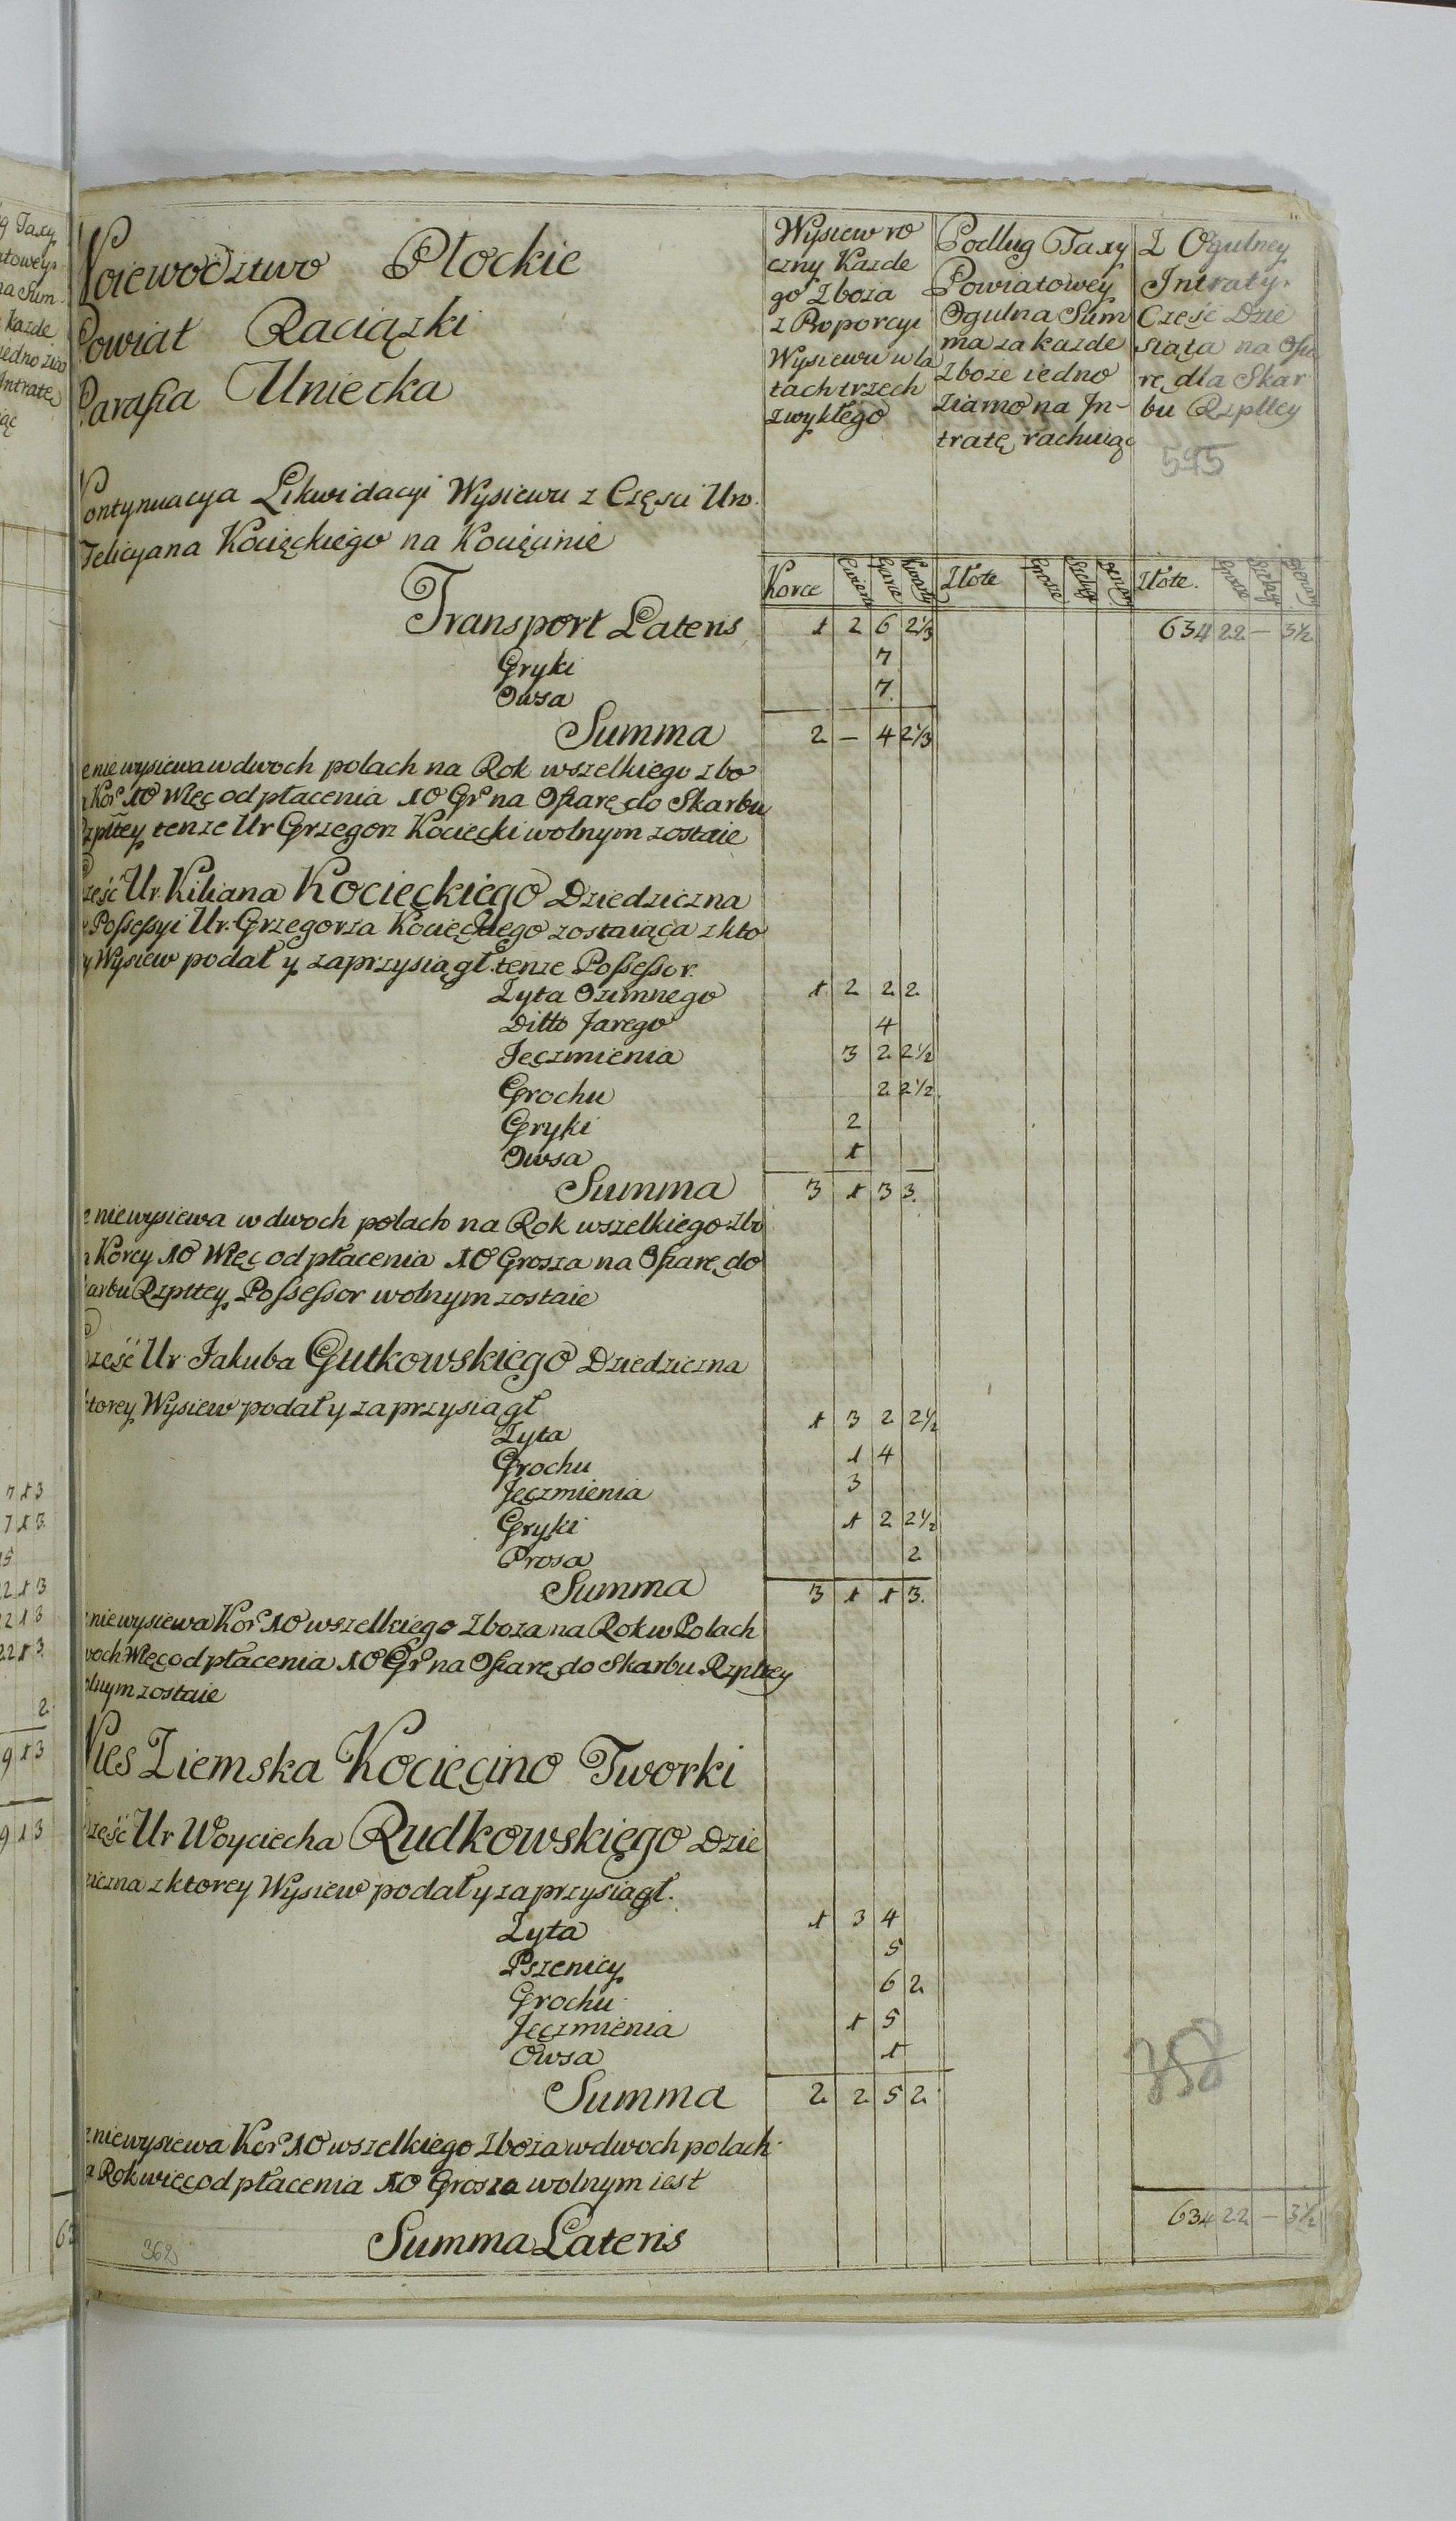 Woiewodztwo Płockie
Powiat Raciązki
Parafia Uniecka
Wysiew ro
czny Kazde
go Zboza
z Proporcyi
Wysiewu w la
tach trzech
zwykłego
Podług Taxy
Powiatowey
Ogulna Sum
ma za kazde
Zboze iedno
ziarno na In-
tratę rachuiąc
Z Ogulney
Intraty
Cześć Dzie
siąta na Ofia
rę dla Skar
bu Rzpltey
595
Kontynuacya Likwidacyi Wysiewu z Części Uro.
Felicyana Kocięckiego na Kocięcinie
Korce Cwierci Garce Kwarty Złote Grosze Szelągi Denary Złote. Grosze Szelągi Denary
Transport Lateris 1 2 6 2⅓ 634 22 — 3½
Gryki 7
Owsa 7.
Summa 2 — 4 2⅓
e nie wysiewa w dwoch polach na Rok wszelkiego zbo
Kor 10 Więc od płacenia 10 Gr na Ofiarę do Skarbu
Rzpltey tenze Ur Grzegorz Kociecki wolnym zostaie
Cześć Ur. Kiliana Kocięckiego Dziedziczna
Possessyi Ur. Grzegorza Kocięckiego zostaiąca z kto
y Wysiew podał y zaprzysiągł tenze Possessor.
Zyta Ozimnego 1 2 2 2
Ditto Jarego 4
Jęczmienia 3 2 2½
Grochu 2 2½
Gryki 2
Owsa 1
Summa 3 1 3 3.
e niewysiewa w dwoch polach na Rok wszelkiego Zbo
Korcy 10 Więc od płacenia 10 Grosza na Ofiarę do
karbu Rzpltey Possessor wolnym zostaie
Cześć Ur Jakuba Gutkowskiego Dziedziczna
ktorey Wysiew podał y zaprzysiągł
Zyta 1 3 2 2½
Grochu 1 4
Jęczmienia 3
Gryki 1 2 2½
Prosa 2
Summa 3 1 1 3.
niewysiewa Kor 10 wszelkiego Zboza na Rok w Polach
woch Więc od płacenia 10 Gr na Ofiarę do Skarbu Rzpltey
olnym zostaie
Wies Ziemska Kocięcino Tworki
Cześć Ur Woyciecha Rudkowskięgo Dzie
ziczna z ktorey Wysiew podał y zaprzysiągł.
Zyta 1 3 4
Pszenicy 5
Grochu 6 2
Jęczmienia 1 5
Owsa 1
Summa 2 2 5 2.
358
z niewysiewa Kor 10 wszelkiego Zboza w dwoch polach
a Rok więc od płacenia 10 Grosza wolnym iest
Summa Lateris 634 22 — 3½